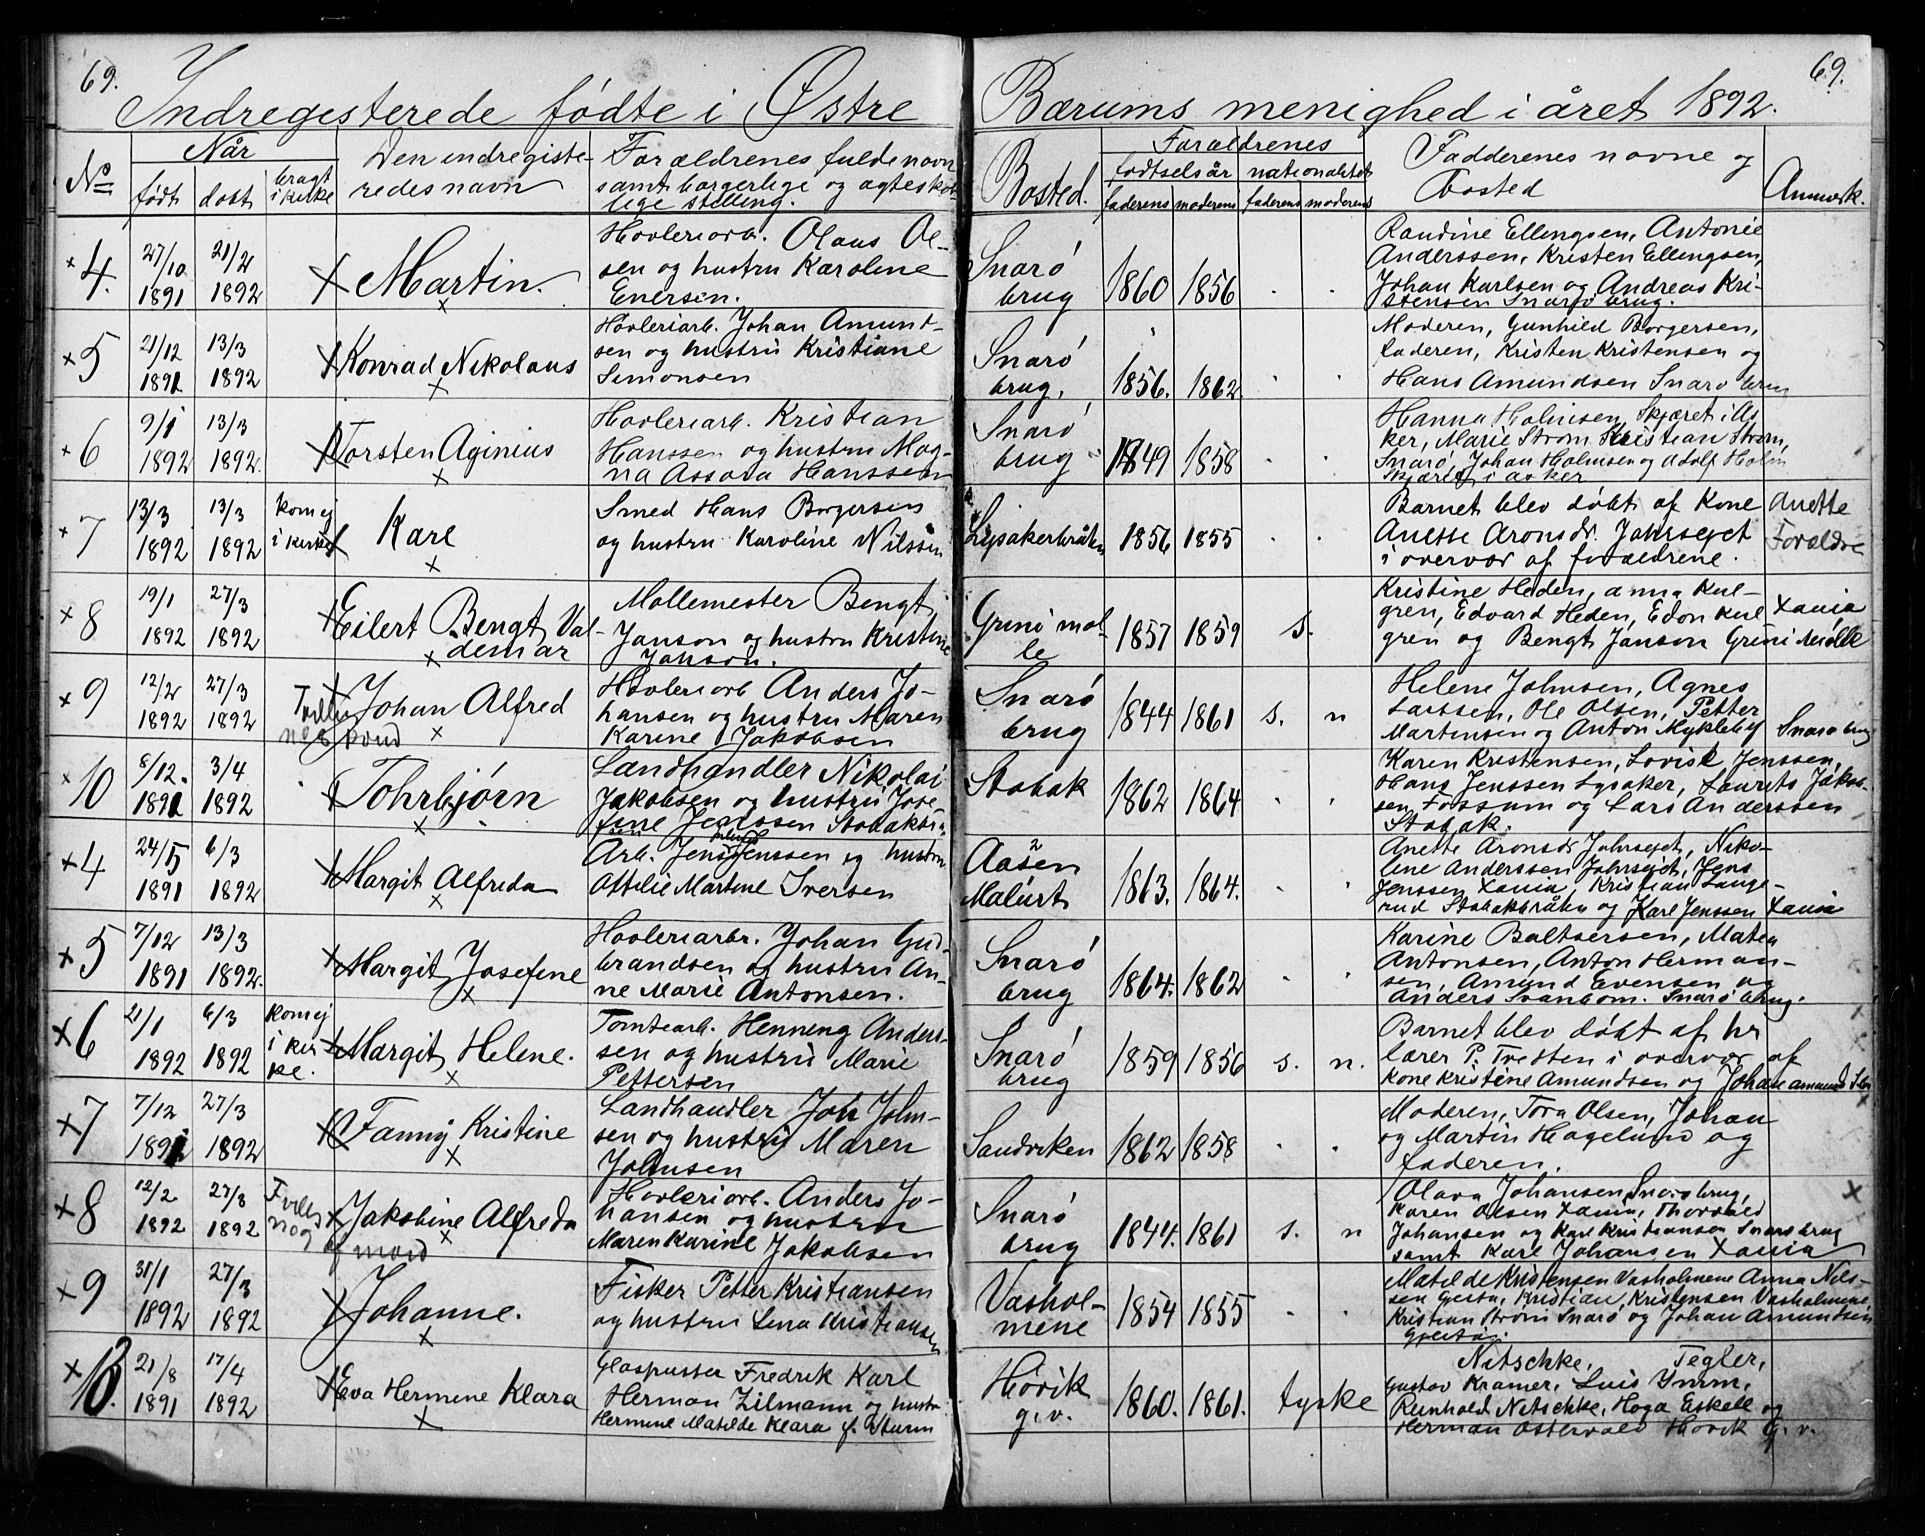 69.
69.
Indregisterede fødte i Østre Bærums menighed i året 1892.
No
Når
født
døbt
bragt i kirke
Den indregiste-
redes navn
Forældrenes fulde navn
samt borgerlige og ægteskab-
lige stilling.
Bosted.
Forældrenes
fødselsår
nationalitet
faderens
moderens
faderens
moderens
Fadderenes navne og
Bosted
Anmærk.
× 4.
27/10 1891
21/2 1892
Martin.
Høvleriarb. Olaus Ol-
sen og hustru Karoline
Enersen.
Snarø
brug
1860
1856
Randine Ellingsen, Antonie
Anderssen, Kristen Ellingsen,
Johan Karlsen og Andreas Kri-
stensen Snarø brug.
× 5
21/12 1891
13/3 1892
Konrad Nikolaus
Høvleriarb. Johan Amund-
sen og hustru Kristiane
Simonsen
Snarø
brug.
1856.
1862
Moderen, Gunhild Borgersen,
faderen, Kristen Kristensen og
Hans Amundsen Snarø brug
× 6
9/1 1892
13/3 1892.
Torsten Aginius
Høvleriarb. Kristian
Hanssen og hustru Mag-
na Hanssen
Snarø
brug
1849
1858
Hanna Holmsen, Skjæret i As-
ker, Marie Strøm Kristian Strøm,
Snarø, Johan Holmsen og Adolf Holm
Skjæret i Asker
× 7
13/3 1892
13/3 1892
kom ej
i kirke
Karl
Smed Hans Borgersen
og hustru Karoline Nilssen
Lysakerbråten
1856
1855
Barnet blev døbt af Kone Anette
Anette Aronsdr. Jahrsejet
i overvær af forældrene.
Forældre
× 8
19/1 1892
27/3 1892
Eilert Bengt Val-
demar
Møllemester Bengt
Janson og hustru Kristine
Janson.
Grini møl-
le
1857
1859
s.
Kristine Heden, Anna Kul-
gren, Edvard Heden, Edon Kul- Xania
gren og Bengt Janson Grini Mølle
× 9
12/2 1892
27/3 1892
Johan Alfred
Høvleriarb Anders Jo-
hansen og hustru Maren
Karine Jakobsen
Snarø
brug
1844
1861
s.
n
Helene Johnsen, Agnes
Larssen, Ole Olsen, Petter
Martensen og Anton Myklebø Snarø brug
× 10
8/12. 1891
3/4 1892
Tohrbjørn
Landhandler Nikolai
Jakobsen og hustru Jose-
fine Jenssen
Stabæk
1862
1864
Karen Kristensen, Lovise Jenssen,
Hans Jenssen Lysaker, Laurits Jakob-
sen, Fossum og Lars Anderssen
Stabæk.
× 4
24/5 1891
6/3 1892
Margit Alfreda
Arb. Jens Jenssen og hustru
Ottilie Martine Iversen
Aasen
1863.
1864.
Anette Aronsdr Jahrsejet, Niko-
line Anderssen Jahrsejet, Jens
Jenssen Xania, Kristian Lange-
rud Stabækbråten og Karl Jenssen Xania
× 5
7/12 1891
13/3 1892.
Margit Josefine
Høvleriarbr. Johan Gud-
brandsen og hustru An-
ne Marie Antonsen.
Snarø
brug
1864.
1862
Karine Baltsersen, Matea
Antonsen, Anton Herman-
sen, Amund Evensen og
Anders Svanbom. Snarø brug.
× 6
21/1 1892
6/3 1892
kom ej
i kir-
ke.
Margit Helene.
Tomtearb. Henning Anders-
sen og hustru Marie
Pettersen
Snarø
brug
1859
1856
s.
n.
Barnet blev døbt af hr
lærer P. Tresten i overvær af
Kone Kristine Amundsen og Johan Amundsen
× 7
7/12 1891
27/3 1892
Fanny Kristine
Landhandler Joh John-
sen og hustru Maren
Johnsen
Sandviken
1862
1858
Moderen, Tora Olsen, Johan
og Martin Hagelund og
faderen.
× 8
12/2 1892
27/3 1892
Jakobine Alfreda
Høvleriarb. Anders Jo-
hansen og hustru
Maren Karine Jakobsen
Snarø
brug
1844.
1861
s.
n
Olava Johansen, Snarø brug,
Karen Olsen Xania, Thorvald
Johansen og Karl Kristiansen Snarø brug
samt Karl Johansen Xania
×
× 9
31/1 1892
27/3 1892
Johanne.
Fisker Petter Kristiansen
og hustru Lena Kristiansen
Vashol-
mene
1854
1855
Matilde Kristensen Vasholmene Anna Nils-
sen Kristian Kristensen Vasholmene,
Kristian Strøm Snarø og Johan Amundsen
× 10.
21/8 1891
17/4 1892
Eva Hermine Klara
Glaspusser Fredrik Karl
Herman Zilmann og hustru
Hermine Matilde Klara f. Sturm
Høvik
g.v.
1860.
1861.
tyske
Nitschke, Tegler,
Gustav Kramer, Luis Ymm,
Reinhold Nitschke, Hoga Eskell og
Herman Ostervald Høvik g. v.